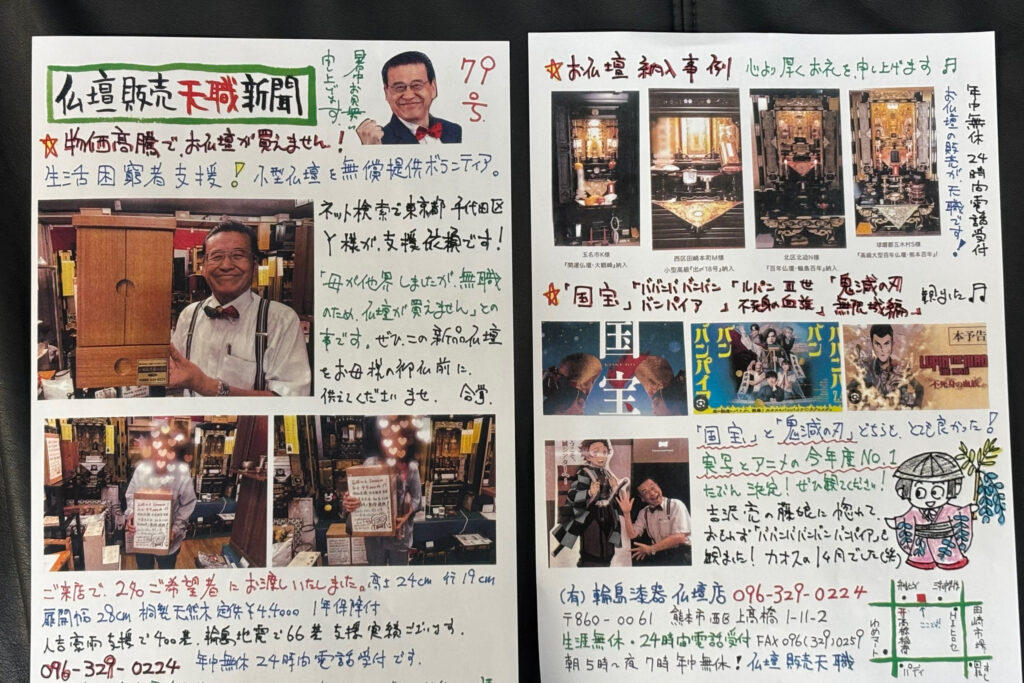 仏壇販売天職新聞
暑中お見舞
申し上げます
79号
☆物価高騰で、お仏壇が買えません！
生活困窮者支援！小型仏壇を無償提供ボランティア。
ネット検索で東京都千代田区
Y様が、支援依頼です！
「母が他界しましたが、無職
のため、仏壇が買えません」との
事です。ぜひ、この新品仏壇
をお母様の御仏前に、
供えてくださいませ。合掌。
ご来店で、2名ご希望者にお渡しいたしました。高さ24cm 行19cm
扉開幅28cm 桐製天然木 定価¥44000 1年保障付
人吉豪雨支援で400基、輪島地震で66基 支援実績ございます。
096-329-0224 年中無休24時間電話受付です。
☆お仏壇納入事例 心より厚くお礼を、申し上げます♬
年中無休 24時間電話受付
お仏壇の販売が、天職です！
玉名市K様
『開運仏壇・大鶴崎』納入
西区田崎本町M様
小型高級『出が18号』納入
北区北迫N様
『百年仏壇・輪島百年』納入
球磨郡五木村S様
『高級大型百年仏壇・熊本百年』！
☆「国宝」「ババンババンバンバンパイア」「ルパン三世 不死身の血族」「鬼滅の刃 無限城編」観ました♬
国宝
ババンババンバンバンパイア
本予告
LUPIN THE IIIRD
不死身の血族
「国宝」と「鬼滅の刃」どちらも、とても良かった！
実写とアニメの今年度NO.1
たぶん決定！ぜひ観てください！
吉沢亮の藤娘に惚れて
おもわず「ババンババンバンバンパイア」も
観ました！カオスの1ヶ月でした(笑)
(有)輪島漆器仏壇店 096-329-0224
〒860-0061 熊本市西区上高橋1-11-2
生涯無休・24時間電話受付 FAX096(329)0259
朝5時〜夜7時 年中無休！仏壇販売天職
ここだよ
田崎市場
ゆめマート